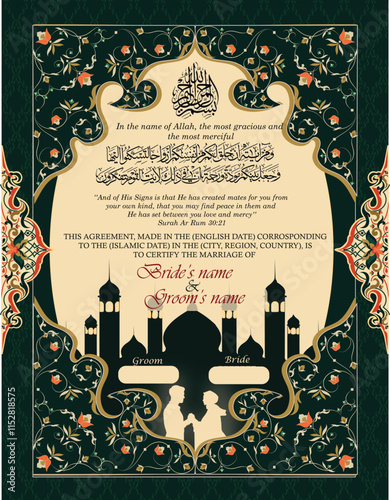 بسم الله الرحمن الرحيم
In the name of Allah, the most gracious and
the most merciful
ومن آياته أن خلق لكم من أنفسكم أزواجا لتسكنوا إليها
وجعل بينكم مودة ورحمة إن في ذلك لآيات لقوم يتفكرون
"And of His Signs is that He has created mates for you from
your own kind, that you may find peace in them and
He has set between you love and mercy"
Surah Ar Rum 30:21
THIS AGREEMENT, MADE IN THE (ENGLISH DATE) CORROSPONDING
TO THE (ISLAMIC DATE) IN THE (CITY, REGION, COUNTRY), IS
TO CERTIFY THE MARRIAGE OF
Bride's name
&
Groom's name
Groom Bride
Adobe Stock | #1152818575